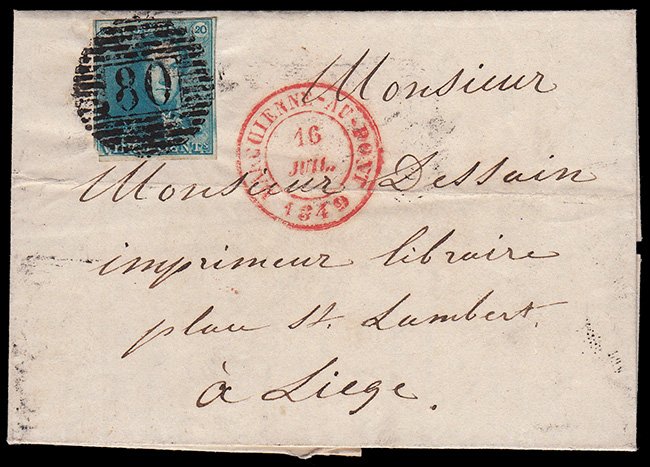 20
80
VINGT CENTS
MARCHIENNE-AU-PONT
16
JUIL.
1849
Monsieur
Monsieur Dessain
imprimeur libraire
place St. Lambert.
à Liege.